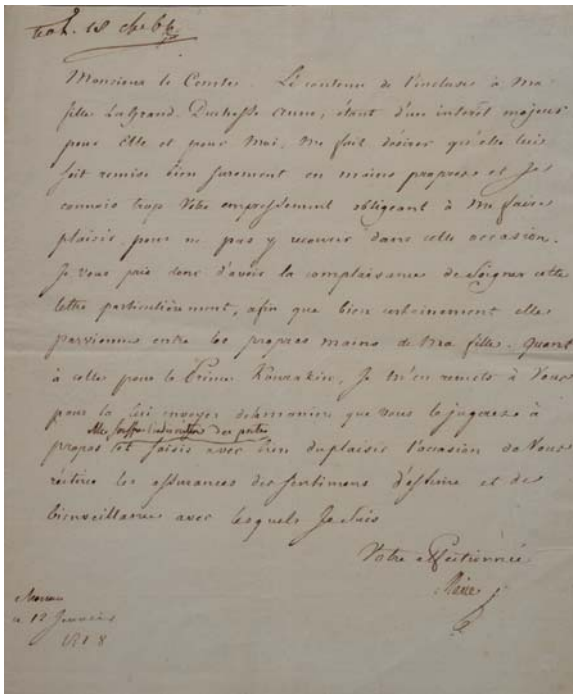 18
Monsieur le Comte. Le contenu de l'incluse à Ma
fille La Grand-Duchesse Anne, étant d'un interêt majeur
pour Elle et pour Moi, Me fait désirer qu'elle lui
soit remise bien surement en mains propres et Je
connois trop Votre empressement obligeant à Me faire
plaisir pour ne pas y recourir dans cette occasion.
Je Vous prie donc d'avoir la complaisance de Soigner cette
lettre particulièrement, afin que bien certainement elle
parvienne entre les propres mains de Ma fille. Quant
à celle pour le Prince Kourakin, Je M'en remets à Vous
pour la lui envoyer de la maniere que Vous le jugerez à
propos et saisis avec bien du plaisir l'occasion de Vous
réitérer les assurances des sentimens d'estime et de
bienveillance avec lesquels Je suis
Votre affectionnée
Marie
Moscou
Janvier
1818